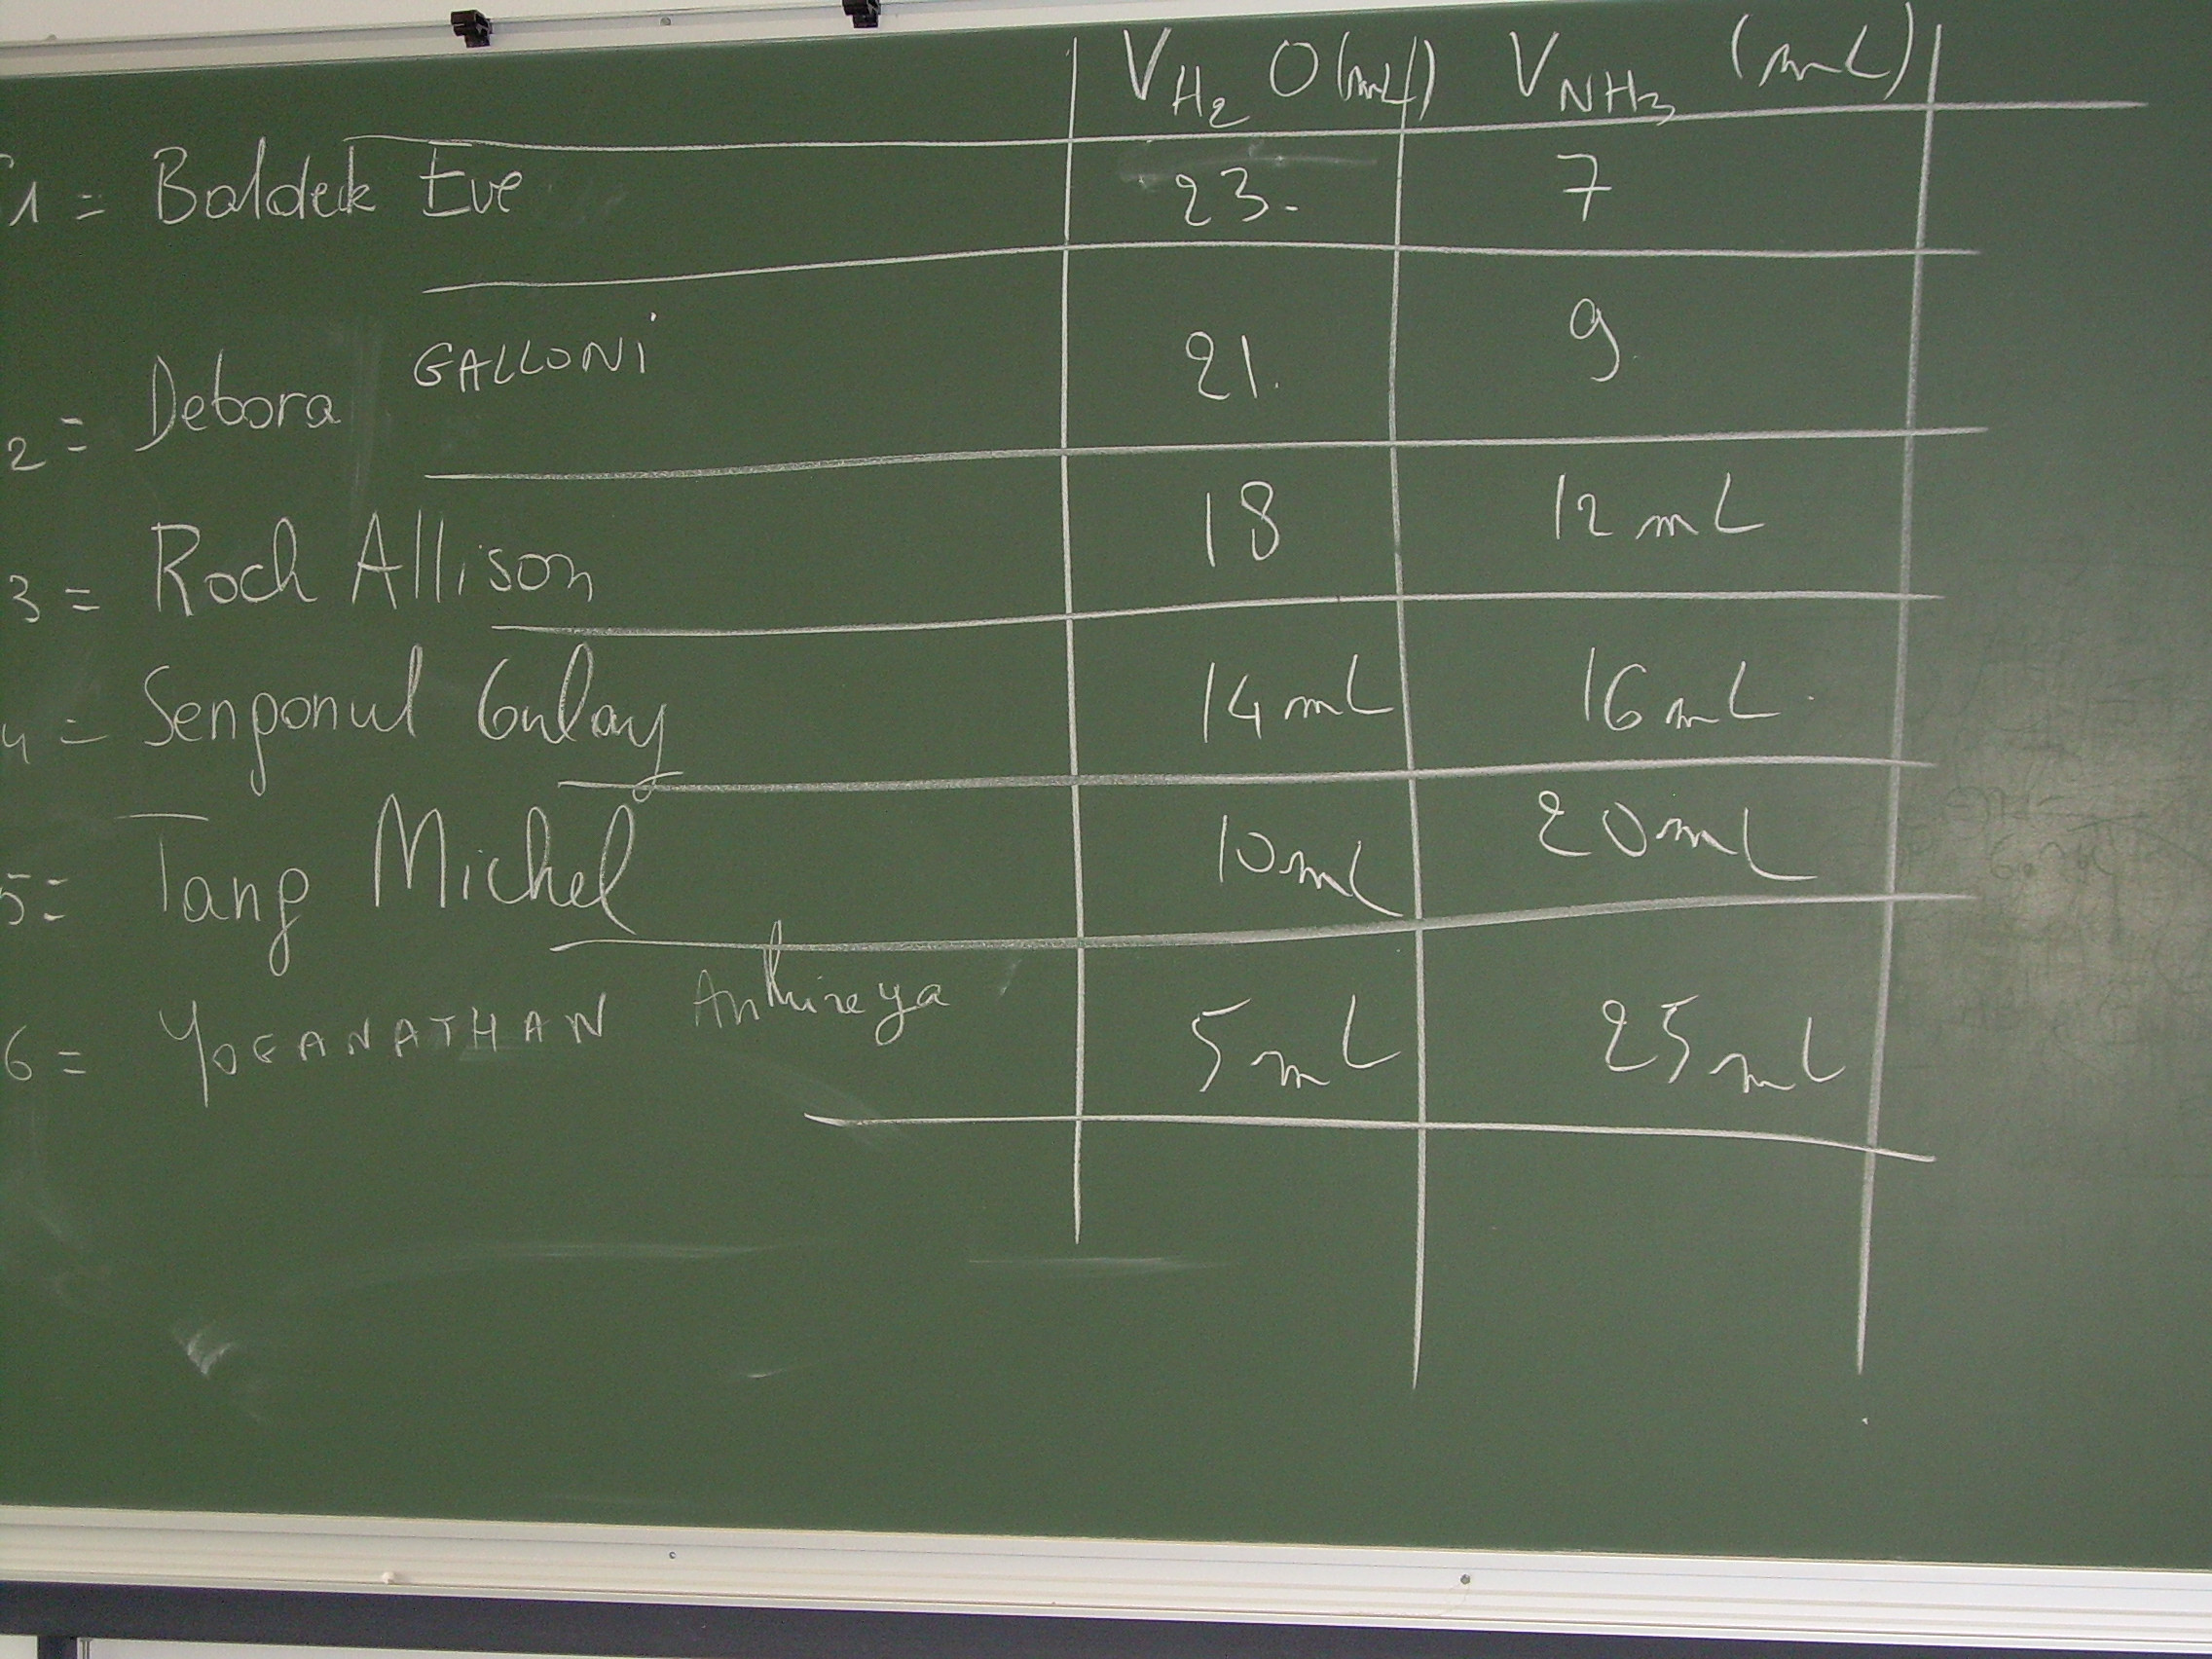 V H2O (mL) V NH3 (mL)
1 = Baldeck Eve 23. 7
2 = Debora GALLONI 21. 9
3 = Roch Allison 18 12 mL
4 = Senponul Gulay 14 mL 16 mL
5 = Tang Michel 10 mL 20 mL
6 = YOGANATHAN Anthireya 5 mL 25 mL